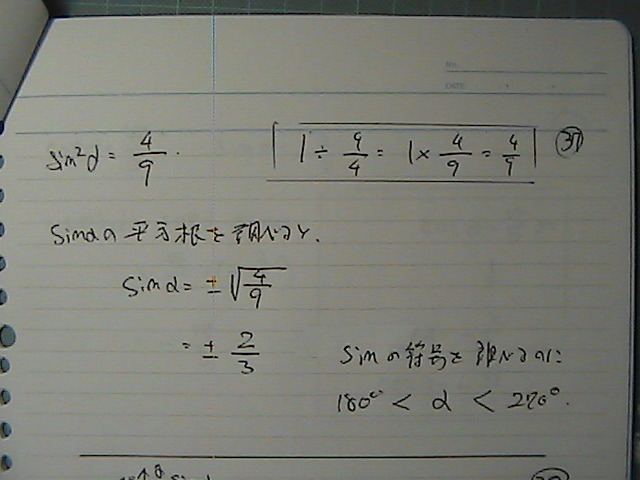 No.
DATE
sin²α = 4/9.
1 ÷ 9/4 = 1 × 4/9 = 4/9
37
sinαの平方根を調べると、
sinα = ±√(4/9)
= ± 2/3
sinの符号を調べるのに
180° < α < 270°.